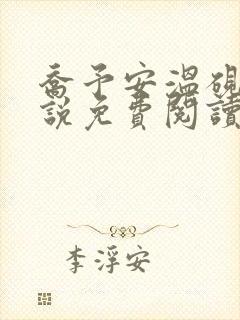 喬予安溫硯
說免費閱讀
李浮安